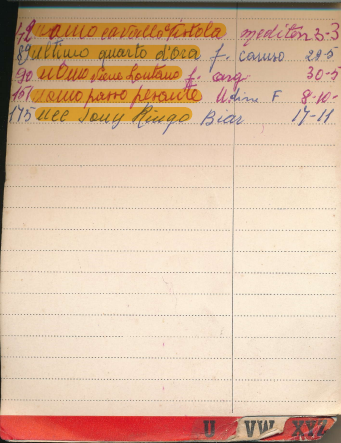 42 uomo cavallo pistola mediterr 3-3
89 ultimo quarto d'ora f. caruso 29-5
90 uomo viene lontano f. arg. 30-5
161 uomo passo pesante Udine F 8-10-
175 uccidi Tony Ringo Biar 17-11
U VW XYZ